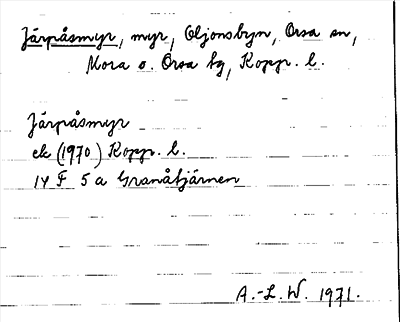 Järpåsmyr, myr, Oljonsbyn, Orsa sn,
Mora o. Orsa tg, Kopp. l.
Järpåsmyr
ek (1970) Kopp. l.
14 F 5 a Granåtjärnen
A.-L. W. 1971.